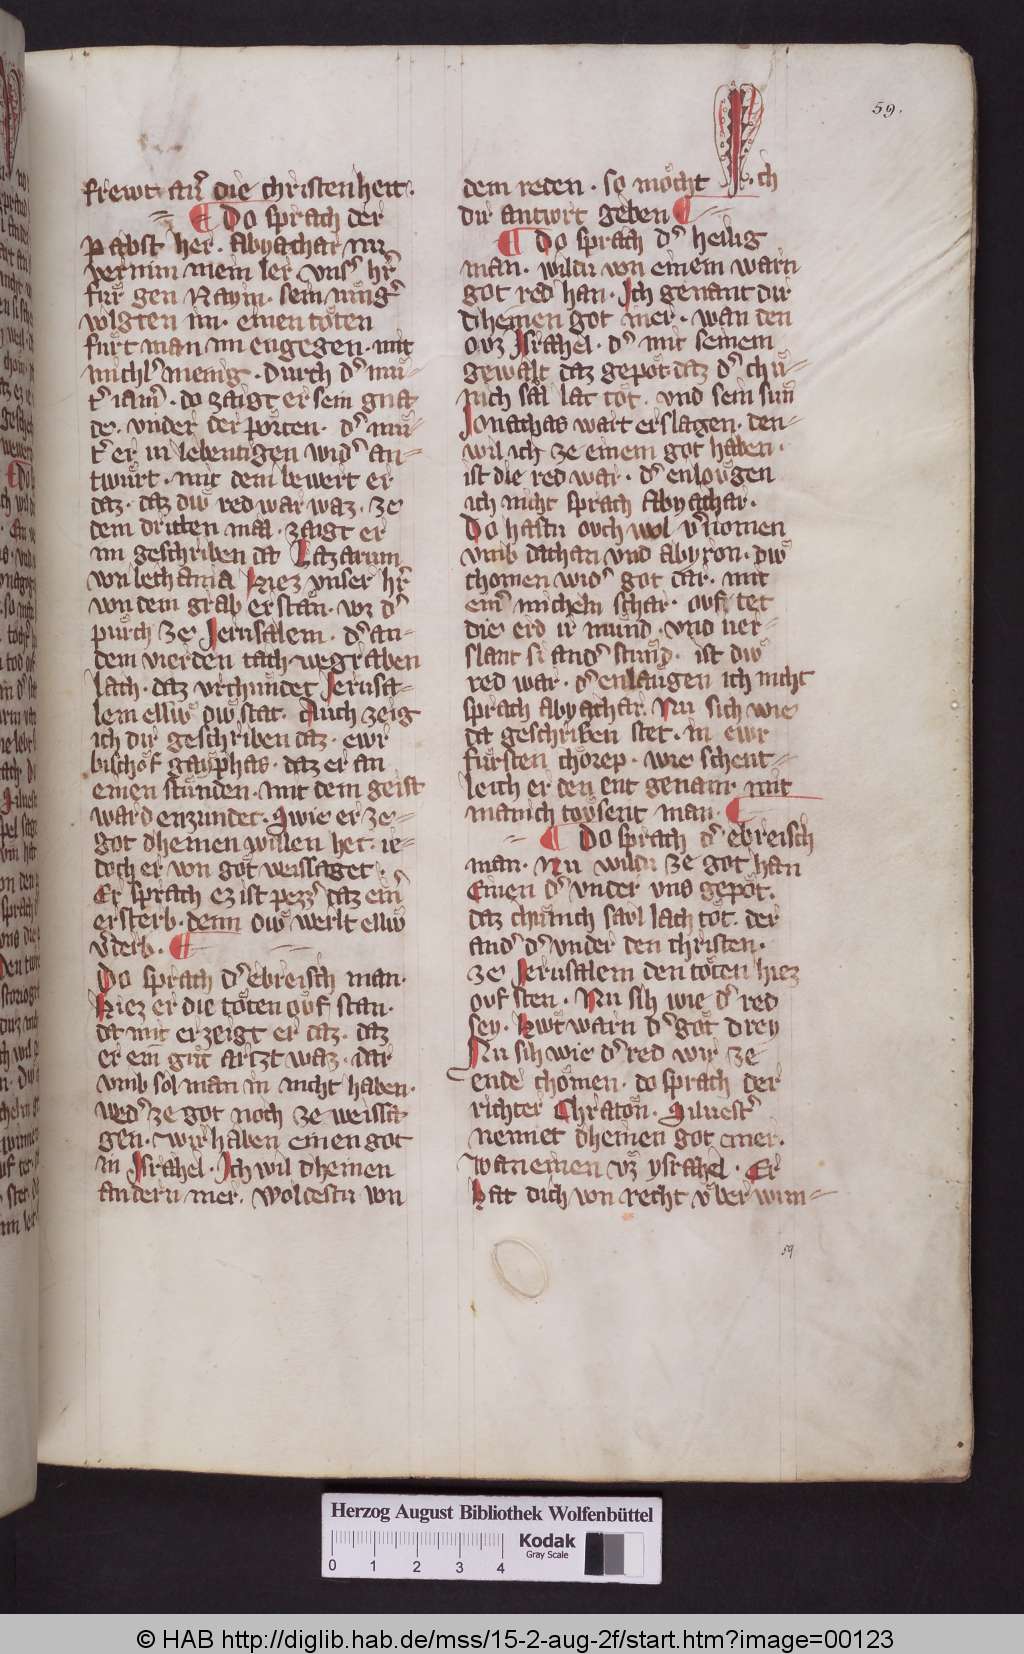 59.
frewt an̄ die christenheit.
Do sprach der
Pabst her. Abyachar nu
vernim mein ler. vnsˀ hˀr
fuͤr gen Naym. sein iungˀ
volgten im. einen toͤten
fuͤrt man im engegen. mit
michlˀ menig. Durch dˀ muͦ-
tˀ iamˀ. do zaigt er sein gna
de. vnder der porten. dˀ muͦ-
tˀ er in lebentigen widˀ an-
twuͤrt. mit dem bewert er
daz. daz diw red war waz. ze
dem dritten mal. zaigt er
im geschriben da Lazarum
von bethania hiez vnser hˀr
von dem grab erstan. vor dˀ
puͤrch ze Jerusalem. dˀ an-
dem vierden tach. wegraben
lach. daz vrchuͤndet Jerusa-
lem elliw diw stat. Auch zeig
ich dir geschriben daz. ewr
bischof gayphas. daz er an
einen stunden. mit dem geist
ward enzundet. Swie er ze-
got dheinen willen het. ie-
doch er von got weissaget.
Er sprach ez ist pezzˀ daz einˀ
ersterb. denn diw werlt elliw
vˀderb.
Do sprach dˀ ebreisch man.
hiez er die toͤten ouf stan.
da mit erzeigt er daz. daz
er ein guͦt arzt waz. dar
vmb sol man in nicht haben.
wedˀ ze got noch ze weissa
gen. Wir haben einen got
in Israhel. Ich wil dheinen
andern mer. Woldestu von
dem reden. so moͤcht ich
dir antwrt geben
Do sprach dˀ heilig
man. wildu von einem warn
got red han. Ich genant dir
dheinen got mer. wan den
ouz Israhel. dˀ mit seinem
gewalt daz gepot daz dˀ chuͤ-
nich sal lat tot. vnd sein sun
Jonathas wart erslagen. den-
wil ich ze einem got haben.
ist die red war. dˀ enlougen
ich nicht sprach Abyathar.
Do hastu ouch wol vˀnomen
vmb dathan vnd abyron. diw
chomen widˀ got dar. mit
einˀ micheln schar. ouf tet
die erd ir mund. vnd uer-
slant si andˀ stund. ist diw
red war. dˀ enlaugen ich nicht
sprach abyachar. Nu sich wie
da geschriben stet. in ewr
fuͤrsten chorep. wie schent-
leich er den ent genam. mit
manich tousent man.
Do sprach dˀ ebreisch
man. Nu wildu ze got han
Einen dˀ vnder vns gepot.
daz chuͤnich saul lach tot. der
andˀ dˀ vnder den christen.
ze Jerusalem den toͤten hiez
ouf sten. Nu sih wie dˀ red
sey. Hwͦt warn dˀ got drey
Nu sih wie dˀ red wir ze
ende choͤmen. do sprach der
richter Chraton. Siluestˀ
nennet dheinen got mer.
wan einen vz ysrahel. Er
hat dich von recht vͤber wun-
59
Herzog August Bibliothek Wolfenbüttel
0 1 2 3 4
Kodak
Gray Scale
© HAB http://diglib.hab.de/mss/15-2-aug-2f/start.htm?image=00123